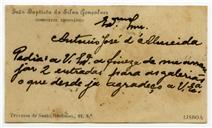 João Baptista da Silva Gonçalves
Ex.mo Snr.
Antonio José d'Almeida
Pedia a V. Ex.ª a fineza de me arran-
jar 2 entradas para as galerias
o que desde já agradeço a V. Ex.ª
Travessa de Santo
LISBOA